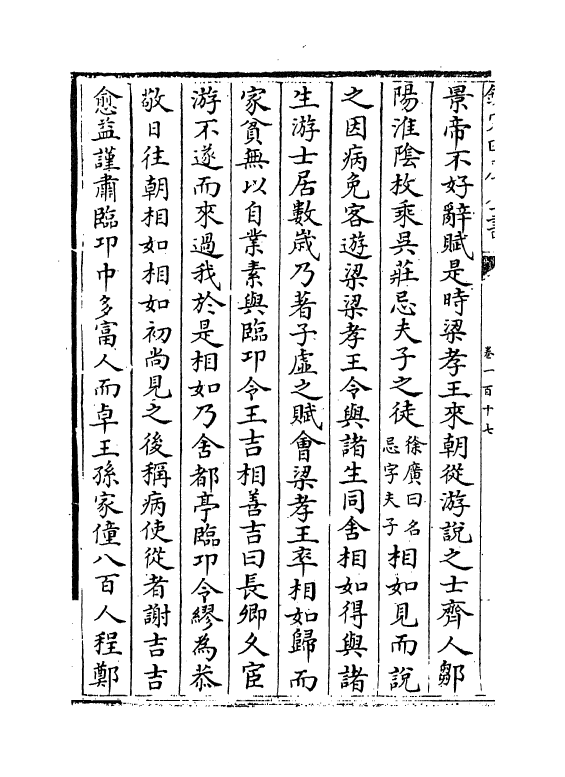 卷一百十七
景帝不好辭賦是時梁孝王來朝從游說之士齊人鄒
陽淮陰枚乘吳莊忌夫子之徒徐廣曰名忌字夫子相如見而說
之因病免客遊梁梁孝王令與諸生同舍相如得與諸
生游士居數歲乃著子虛之賦會梁孝王卒相如歸而
家貧無以自業素與臨邛令王吉相善吉曰長卿久宦
游不遂而來過我於是相如乃舍都亭臨邛令繆為恭
敬日往朝相如相如初尚見之後稱病使從者謝吉吉
愈益謹肅臨邛中多富人而卓王孫家僮八百人程鄭